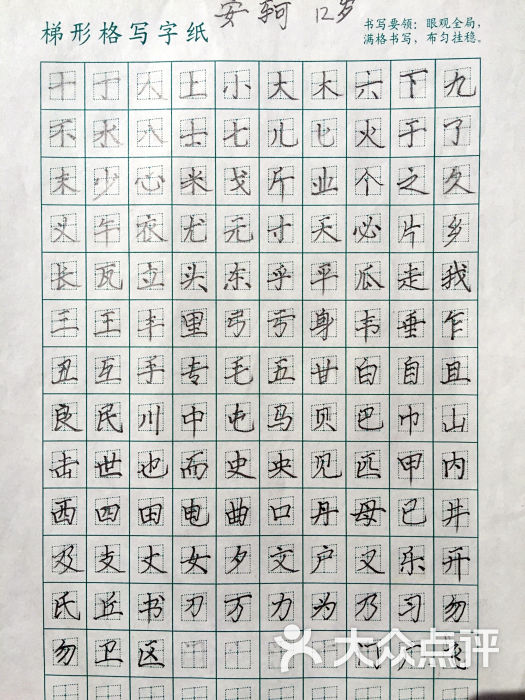 安轲 12岁
梯形格写字纸
书写要领：眼观全局，
满格书写，布匀挂稳。
十丁人上小大木六下九
不水八士七儿匕火于了
末少心米戈斤业个之久
头午衣尤元寸天必片乡
长瓦立头东乎平瓜走我
三王丰里弓亏身韦垂乍
丑互手专毛五甘白自且
良民川中屯马贝巴巾山
击世也而史央见匹甲内
西四田电曲口丹母已井
及支丈女夕文户叉乐开
氏丘书刀万力为乃习勿
勿卫区
大众点评